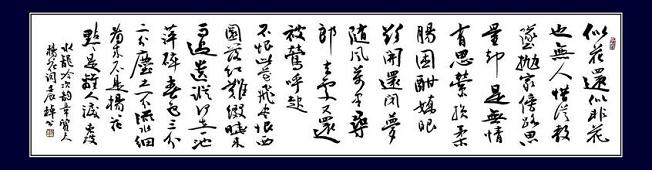 似花還似非花
也無人惜從教
墜拋家傍路思
量却是無情
有思縈損柔
腸困酣嬌眼
欲開還閉夢
隨風萬里尋
郎去處又還
被鶯呼起
不恨此花飛盡恨西
園落紅難綴曉來
雨過遺蹤何在一池
萍碎春色三分
二分塵土一分流水細
看來不是楊花
點點是離人淚
水龍吟次韻章質夫
楊花詞